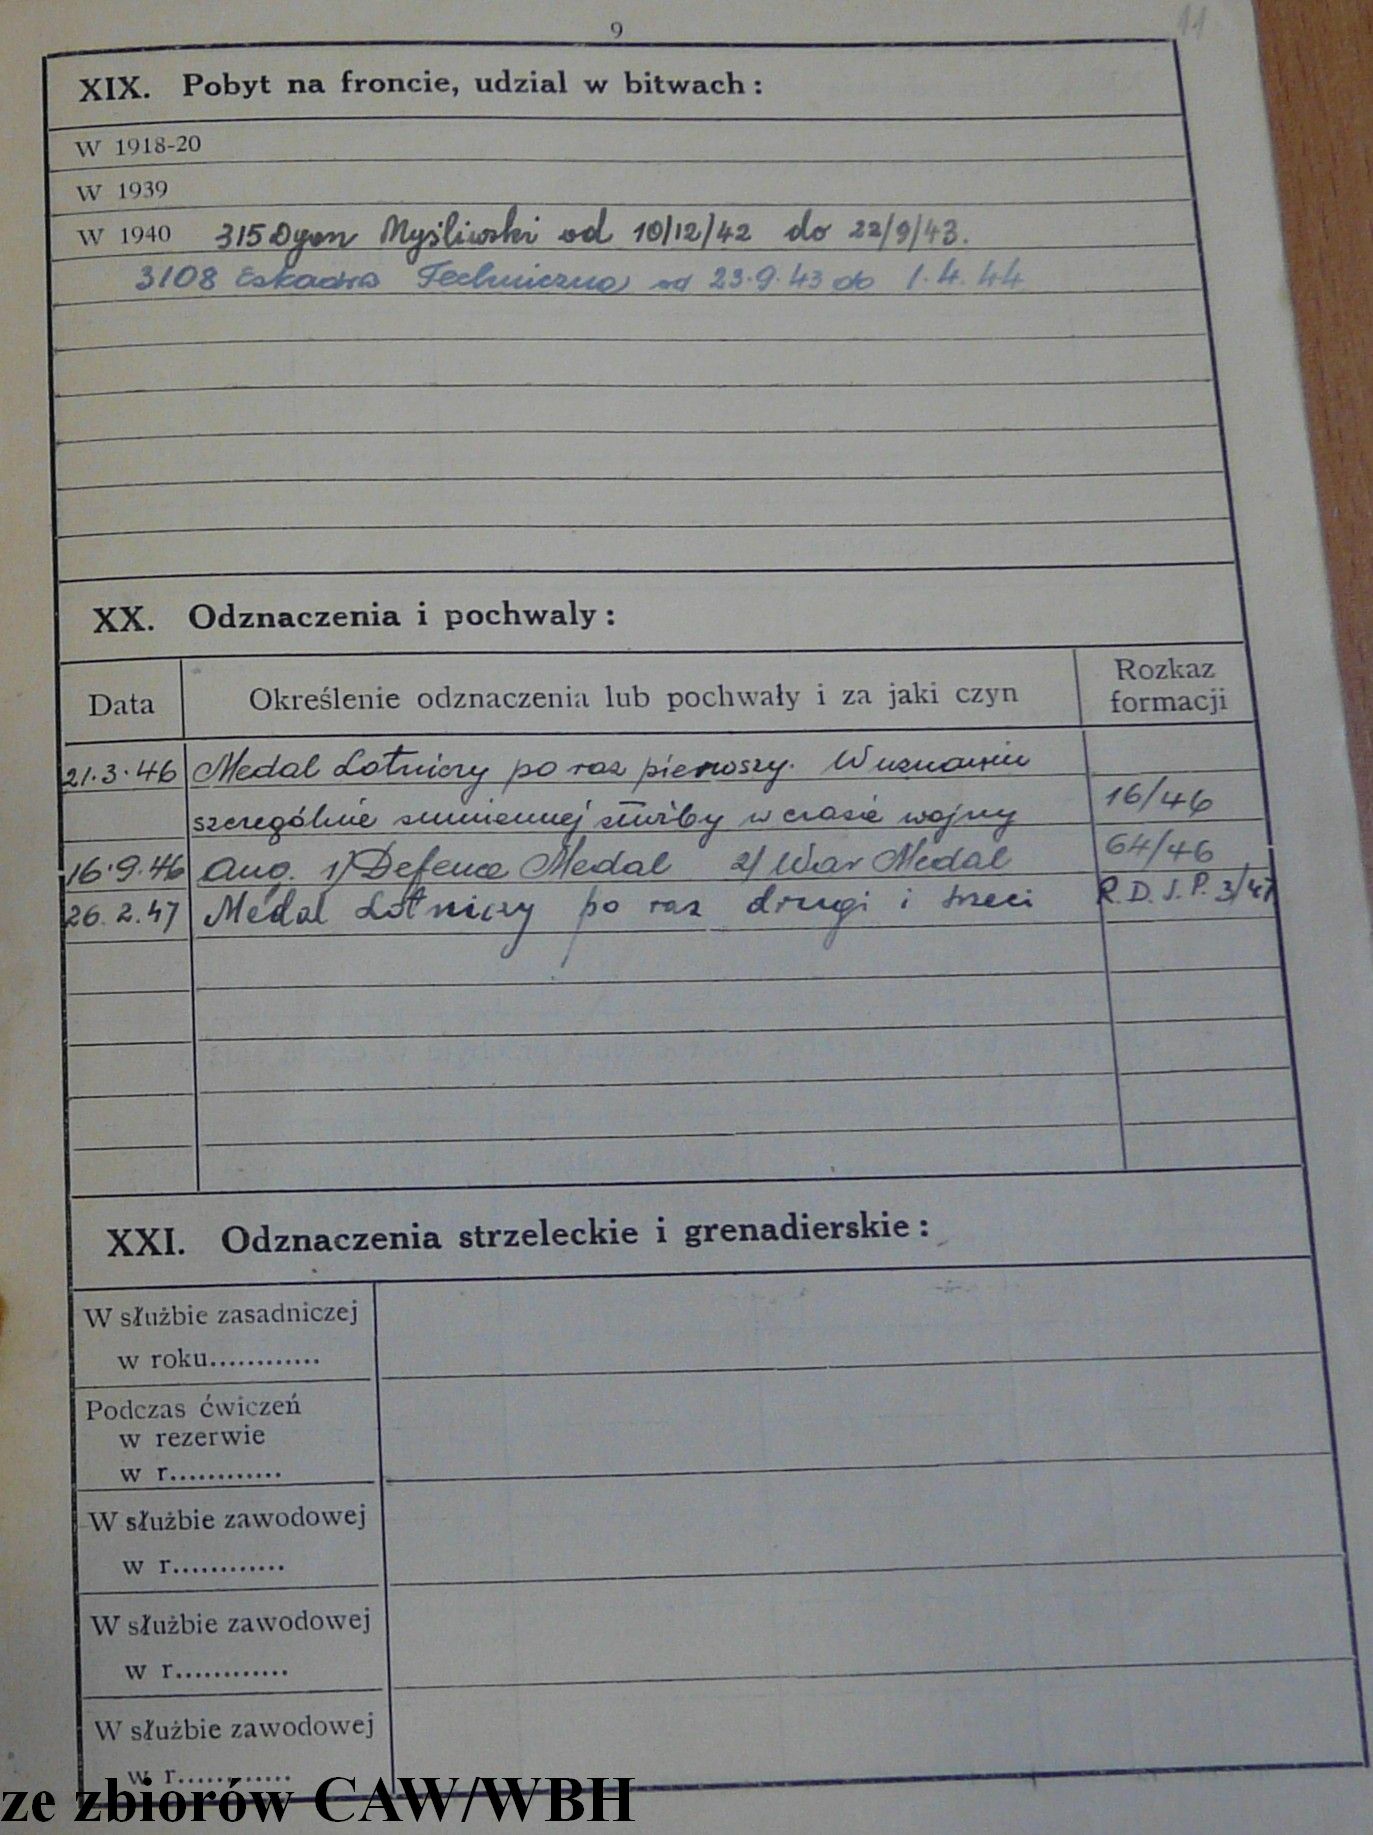 9
11
XIX. Pobyt na froncie, udzial w bitwach :
W 1918-20
W 1939
W 1940 315 Dyon Myśliwski od 10/12/42 do 22/9/43.
3108 Eskadra Techniczna od 23.9.43 do 1.4.44
XX. Odznaczenia i pochwaly :
Data Określenie odznaczenia lub pochwały i za jaki czyn Rozkaz formacji
21.3.46 Medal Lotniczy po raz pierwszy. W uznaniu
szczególnie sumiennej służby w czasie wojny 16/46
16.9.46 Ang. 1/ Defence Medal 2/ War Medal 64/46
26.2.47 Medal Lotniczy po raz drugi i trzeci R.D.S.P. 3/47
XXI. Odznaczenia strzeleckie i grenadierskie :
W służbie zasadniczej
w roku............
Podczas ćwiczeń
w rezerwie
w r............
W służbie zawodowej
w r............
W służbie zawodowej
w r............
W służbie zawodowej
w r............
ze zbiorów CAW/WBH